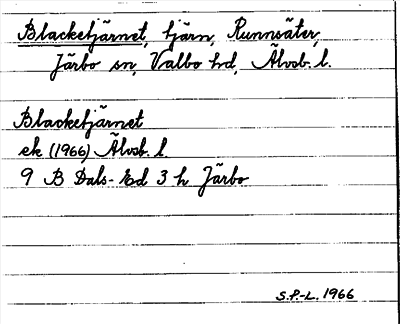 Blacketjärnet, tjärn, Runnsäter,
Järbo sn, Valbo hd, Älvsb. l.
Blacketjärnet
ek (1966) Älvsb. l.
9 B Dals-Ed 3 h Järbo
S.P.-L. 1966